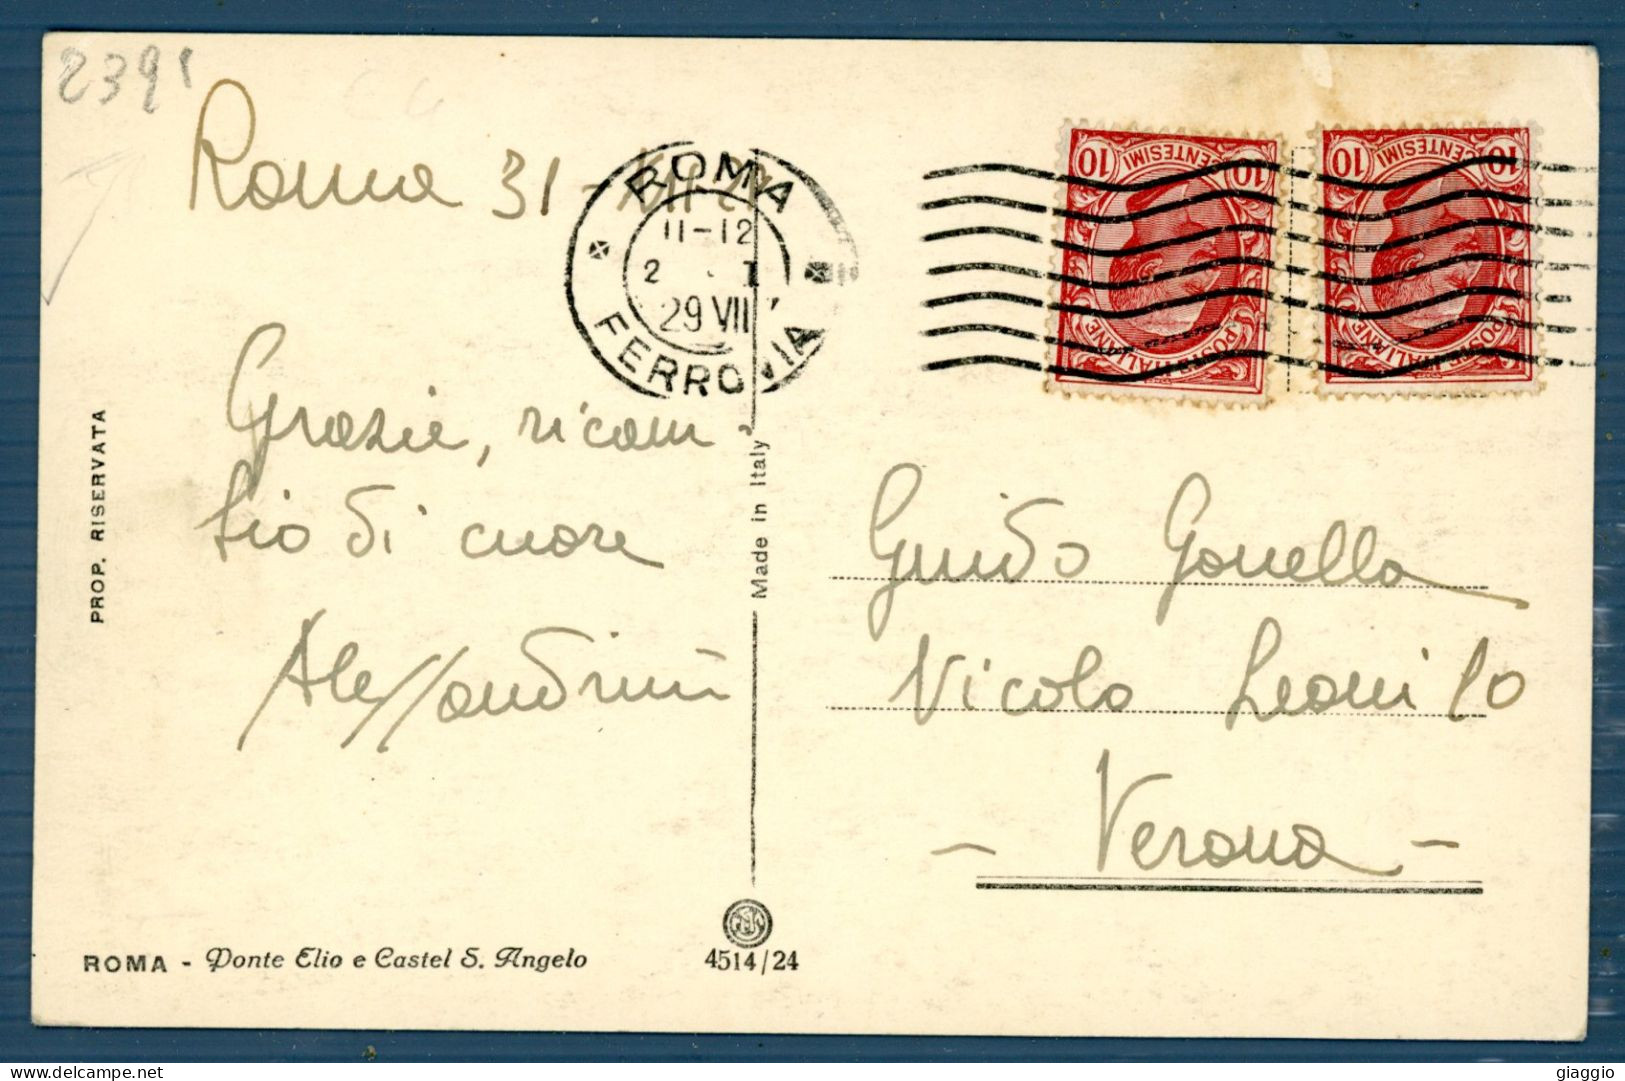 2391
Roma 31 - XII-28
ROMA
11-12
2 . I
29 VII
FERROVIA
10 CENTESIMI 10
POSTE ITALIANE
10 CENTESIMI 10
POSTE ITALIANE
Grazie, ricam
bio di cuore
Alessandrini
PROP. RISERVATA
Made in Italy
Guido Gonella
Vicolo Leoni 10
- Verona -
ROMA - Ponte Elio e Castel S. Angelo
4514/24
delcampe.net
giaggio